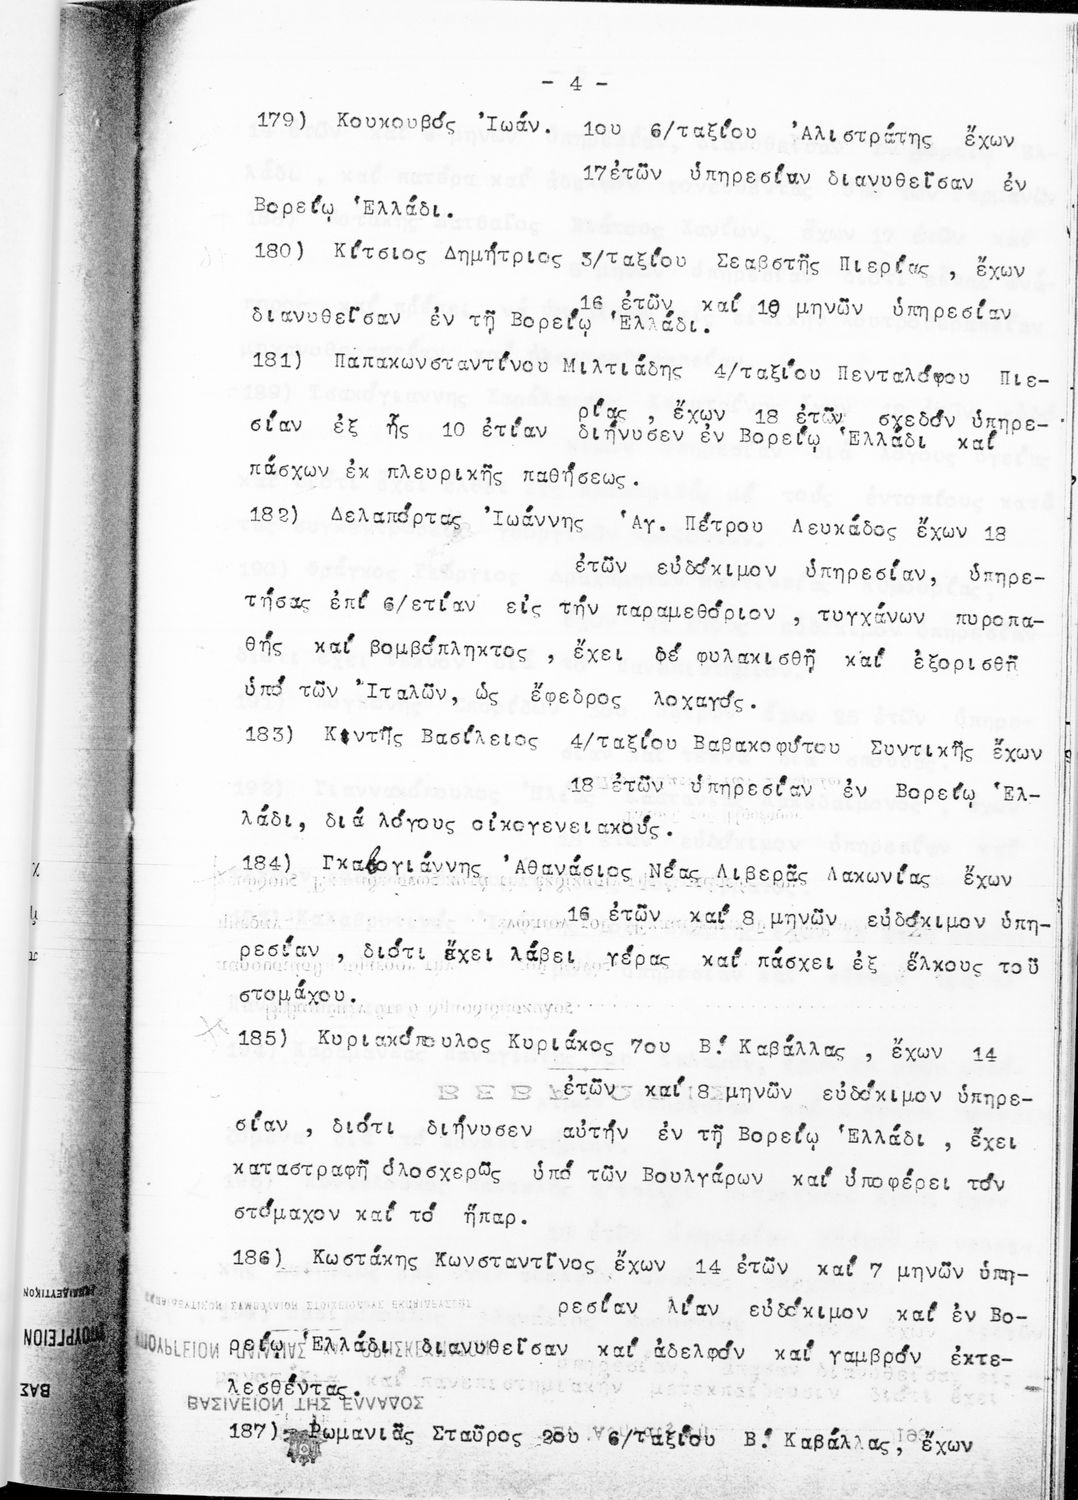 - 4 -
179) Κουκουβός Ἰωάν. 1ου 6/ταξίου Ἀλιστράτης ἔχων
17ἐτῶν ὑπηρεσίαν διανυθεῖσαν ἐν
Βορείῳ Ἑλλάδι.
180) Κίτσιος Δημήτριος 3/ταξίου Σεαβστῆς Πιερίας , ἔχων
16 ἐτῶν καί 10 μηνῶν ὑπηρεσίαν
διανυθεῖσαν ἐν τῇ Βορείῳ Ἑλλάδι.
181) Παπακωνσταντίνου Μιλτιάδης 4/ταξίου Πενταλόφου Πιε-
ρίας , ἔχων 18 ἐτῶν σχεδόν ὑπηρε-
σίαν ἐξ ἧς 10 ἐτίαν διήνυσεν ἐν Βορείῳ Ἑλλάδι καί
πάσχων ἐκ πλευρικῆς παθήσεως.
182) Δελαπόρτας Ἰωάννης Ἁγ. Πέτρου Λευκάδος ἔχων 18
ἐτῶν εὐδόκιμον ὑπηρεσίαν, ὑπηρε-
τήσας ἐπί 6/ετίαν εἰς τήν παραμεθόριον , τυγχάνων πυροπα-
θής καί βομβόπληκτος , ἔχει δέ φυλακισθῆ καί ἐξορισθῆ
ὑπό τῶν Ἰταλῶν, ὡς ἔφεδρος λοχαγός.
183) Κιντῆς Βασίλειος 4/ταξίου Βαβακοφύτου Συντικῆς ἔχων
18 ἐτῶν ὑπηρεσίαν ἐν Βορείῳ Ἑλ-
λάδι, διά λόγους οἰκογενειακούς.
184) Γκαβογιάννης Ἀθανάσιος Νέας Λιβερᾶς Λακωνίας ἔχων
16 ἐτῶν καί 8 μηνῶν εὐδόκιμον ὑπη-
ρεσίαν , διότι ἔχει λάβει γέρας καί πάσχει ἐξ ἕλκους τοῦ
στομάχου.
185) Κυριακόπουλος Κυριάκος 7ου Β! Καβάλλας , ἔχων 14
ἐτῶν καί 8 μηνῶν εὐδόκιμον ὑπηρε-
σίαν , διότι διήνυσεν αὐτήν ἐν τῇ Βορείῳ Ἑλλάδι , ἔχει
καταστραφῆ ὁλοσχερῶς ὑπό τῶν Βουλγάρων καί ὑποφέρει τόν
στόμαχον καί τό ἧπαρ.
186) Κωστάκης Κωνσταντῖνος ἔχων 14 ἐτῶν καί 7 μηνῶν ὑπη-
ρεσίαν λίαν εὐδόκιμον καί ἐν Βο-
ρείῳ Ἑλλάδι διανυθεῖσαν καί ἀδελφόν καί γαμβρόν ἐκτε-
λεσθέντας.
187) Ρωμανιᾶς Σταῦρος 2ου 6/ταξίου Β! Καβάλλας, ἔχων